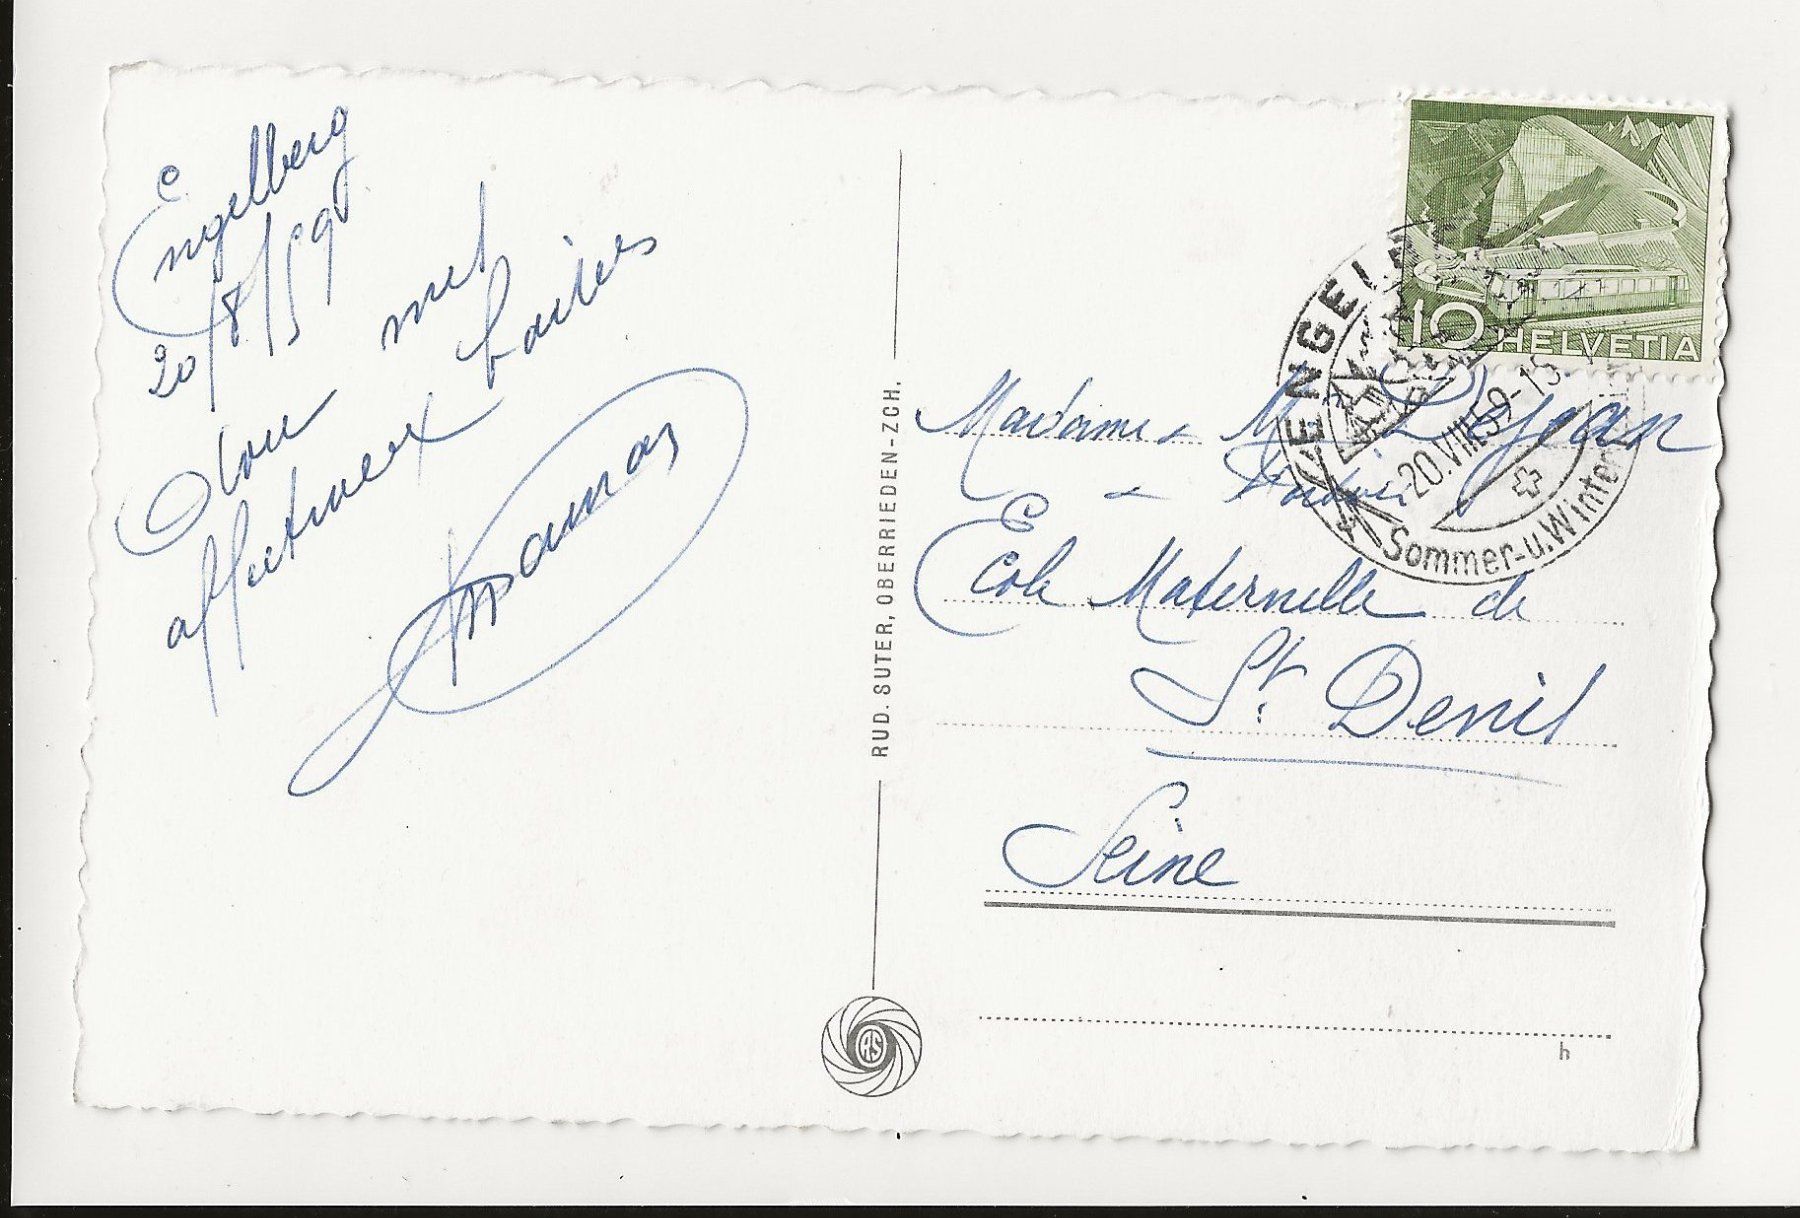 Engelberg
20/8/59
Avec mes
affectueux baisers
RUD. SUTER, OBERRIEDEN-ZCH.
RS
10 HELVETIA
ENGELBERG
20.VIII.59-15
Sommer-u.Winter
Madame M Dejean
Ecole Maternelle de
St. Denis
Seine
h